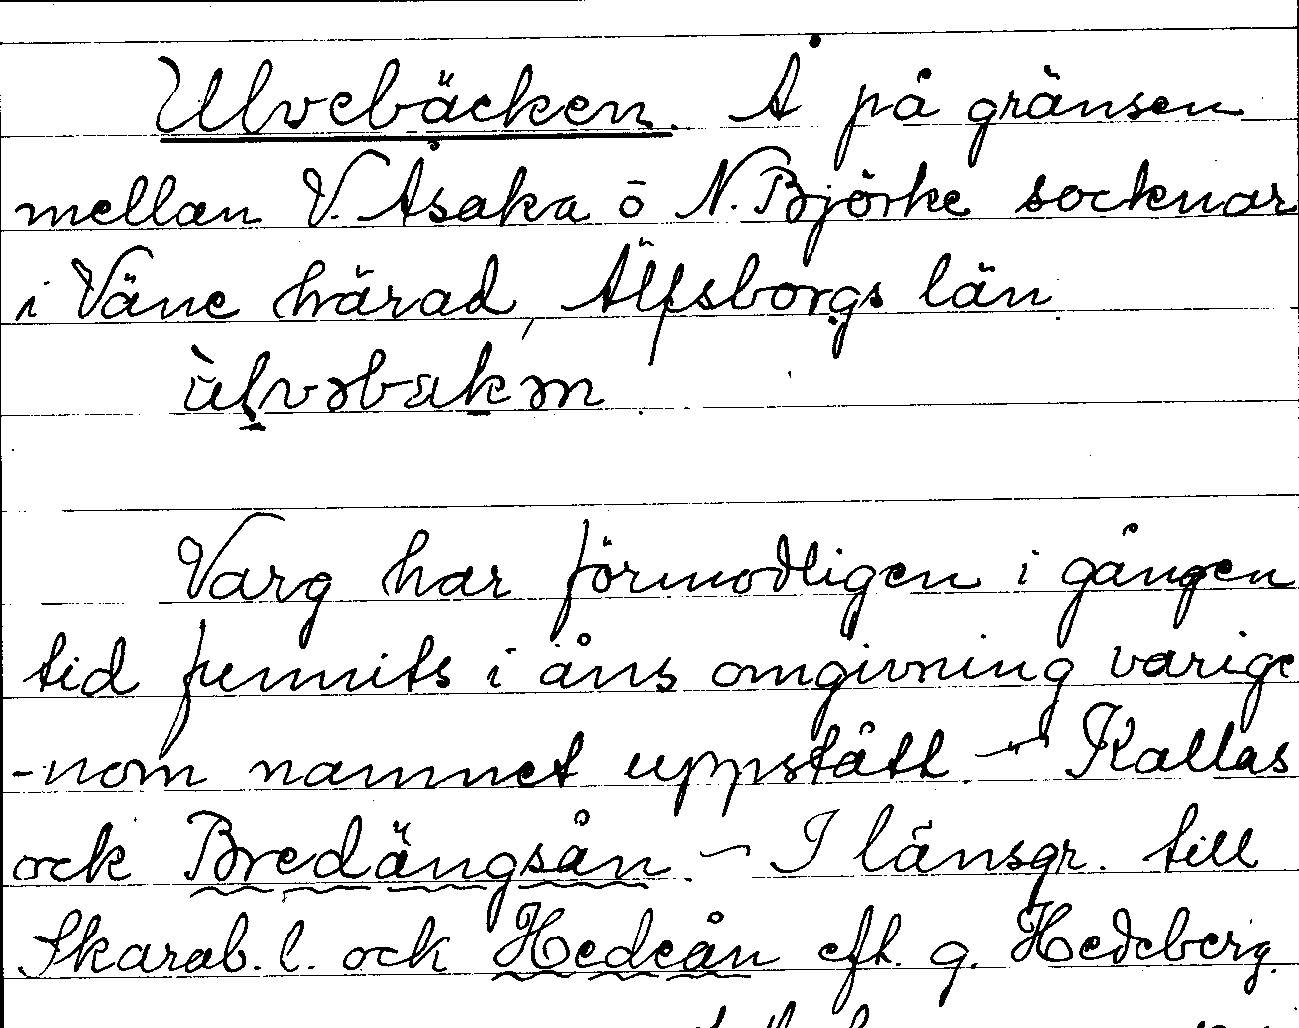 Ulvebäcken. Å på gränsen
mellan V. Åsaka o N. Björke socknar
i Väne härad, Älfsborgs län.
Varg har förmodligen i gången
tid funnits i åns omgivning varige
-nom namnet uppstått. — Kallas
ock Bredängsån. — I länsgr. till
Skarab. l. ock Hedeån eft. g. Hedeberg.